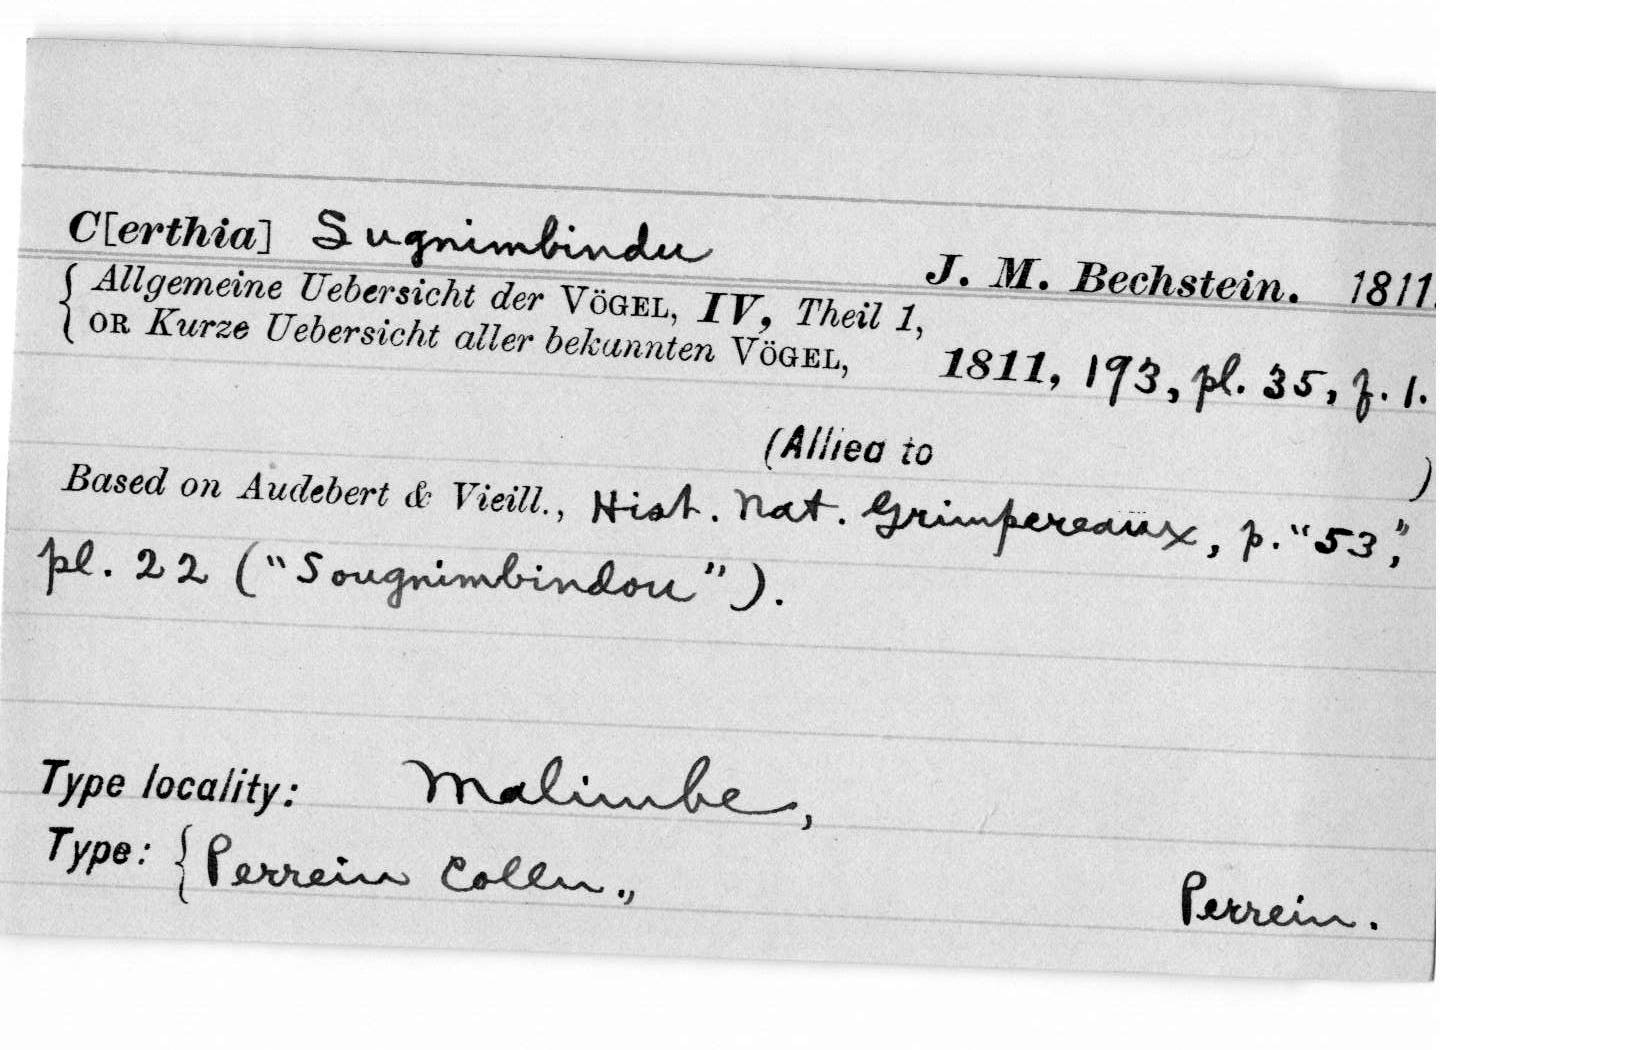 C[erthia] Sugnimbindu J. M. Bechstein. 1811.
{ Allgemeine Uebersicht der VÖGEL, IV, Theil 1,
OR Kurze Uebersicht aller bekannten VÖGEL, 1811, 193, pl. 35, f. 1.
(Allied to )
Based on Audebert & Vieill., Hist. Nat. Grimpereaux, p. "53",
pl. 22 ("Sougnimbindou").
Type locality: Malimbe,
Type: { Perrein Colln., Perrein.